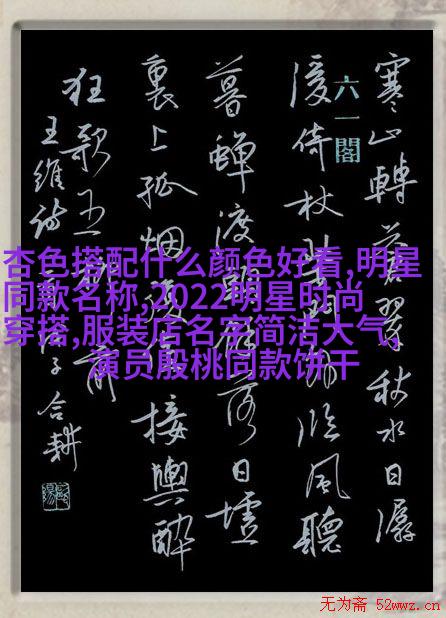 寒山轉蒼翠秋水日潺
六一閣
湲倚杖柴門外臨風聽
暮蟬渡頭餘落日墟
裏上孤烟復值接輿醉
狂歌五柳前
王維詩 子合耕
杏色搭配什么颜色好看,明星
同款名称,2022明星时尚
穿搭,服装店名字简洁大气,
演员殷桃同款饼干
无为斋 52wwz.cn